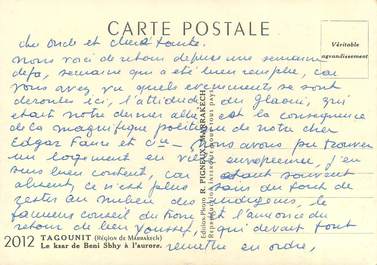 CARTE POSTALE
Véritable
agrandissement
cher oncle et chère tante.
Nous voici de retour depuis une semaine
déjà, semaine qui a été bien remplie, car
vous avez vu quels événements se sont
déroulés ici, l'attitude du Glaoui, qui
était notre dernier est la conséquence
de la magnifique politique de notre cher
Edgar Faure et Cie - Nous avons pu trouver
un logement en ville européenne, j'en
suis bien content, car étant souvent
absent, ce n'est plus sain du tout de
rester au milieu des indigènes, le
fameux conseil du trône et l'annonce du
retour de ben youssef, qui devait tout
remettre en ordre,
Edition Photo R. PIGNEUX, MARRAKECH
Reproduction interdite pour tous pays
2012 TAGOUNIT (Région de Marrakech)
Le ksar de Beni Sbhy à l'aurore.